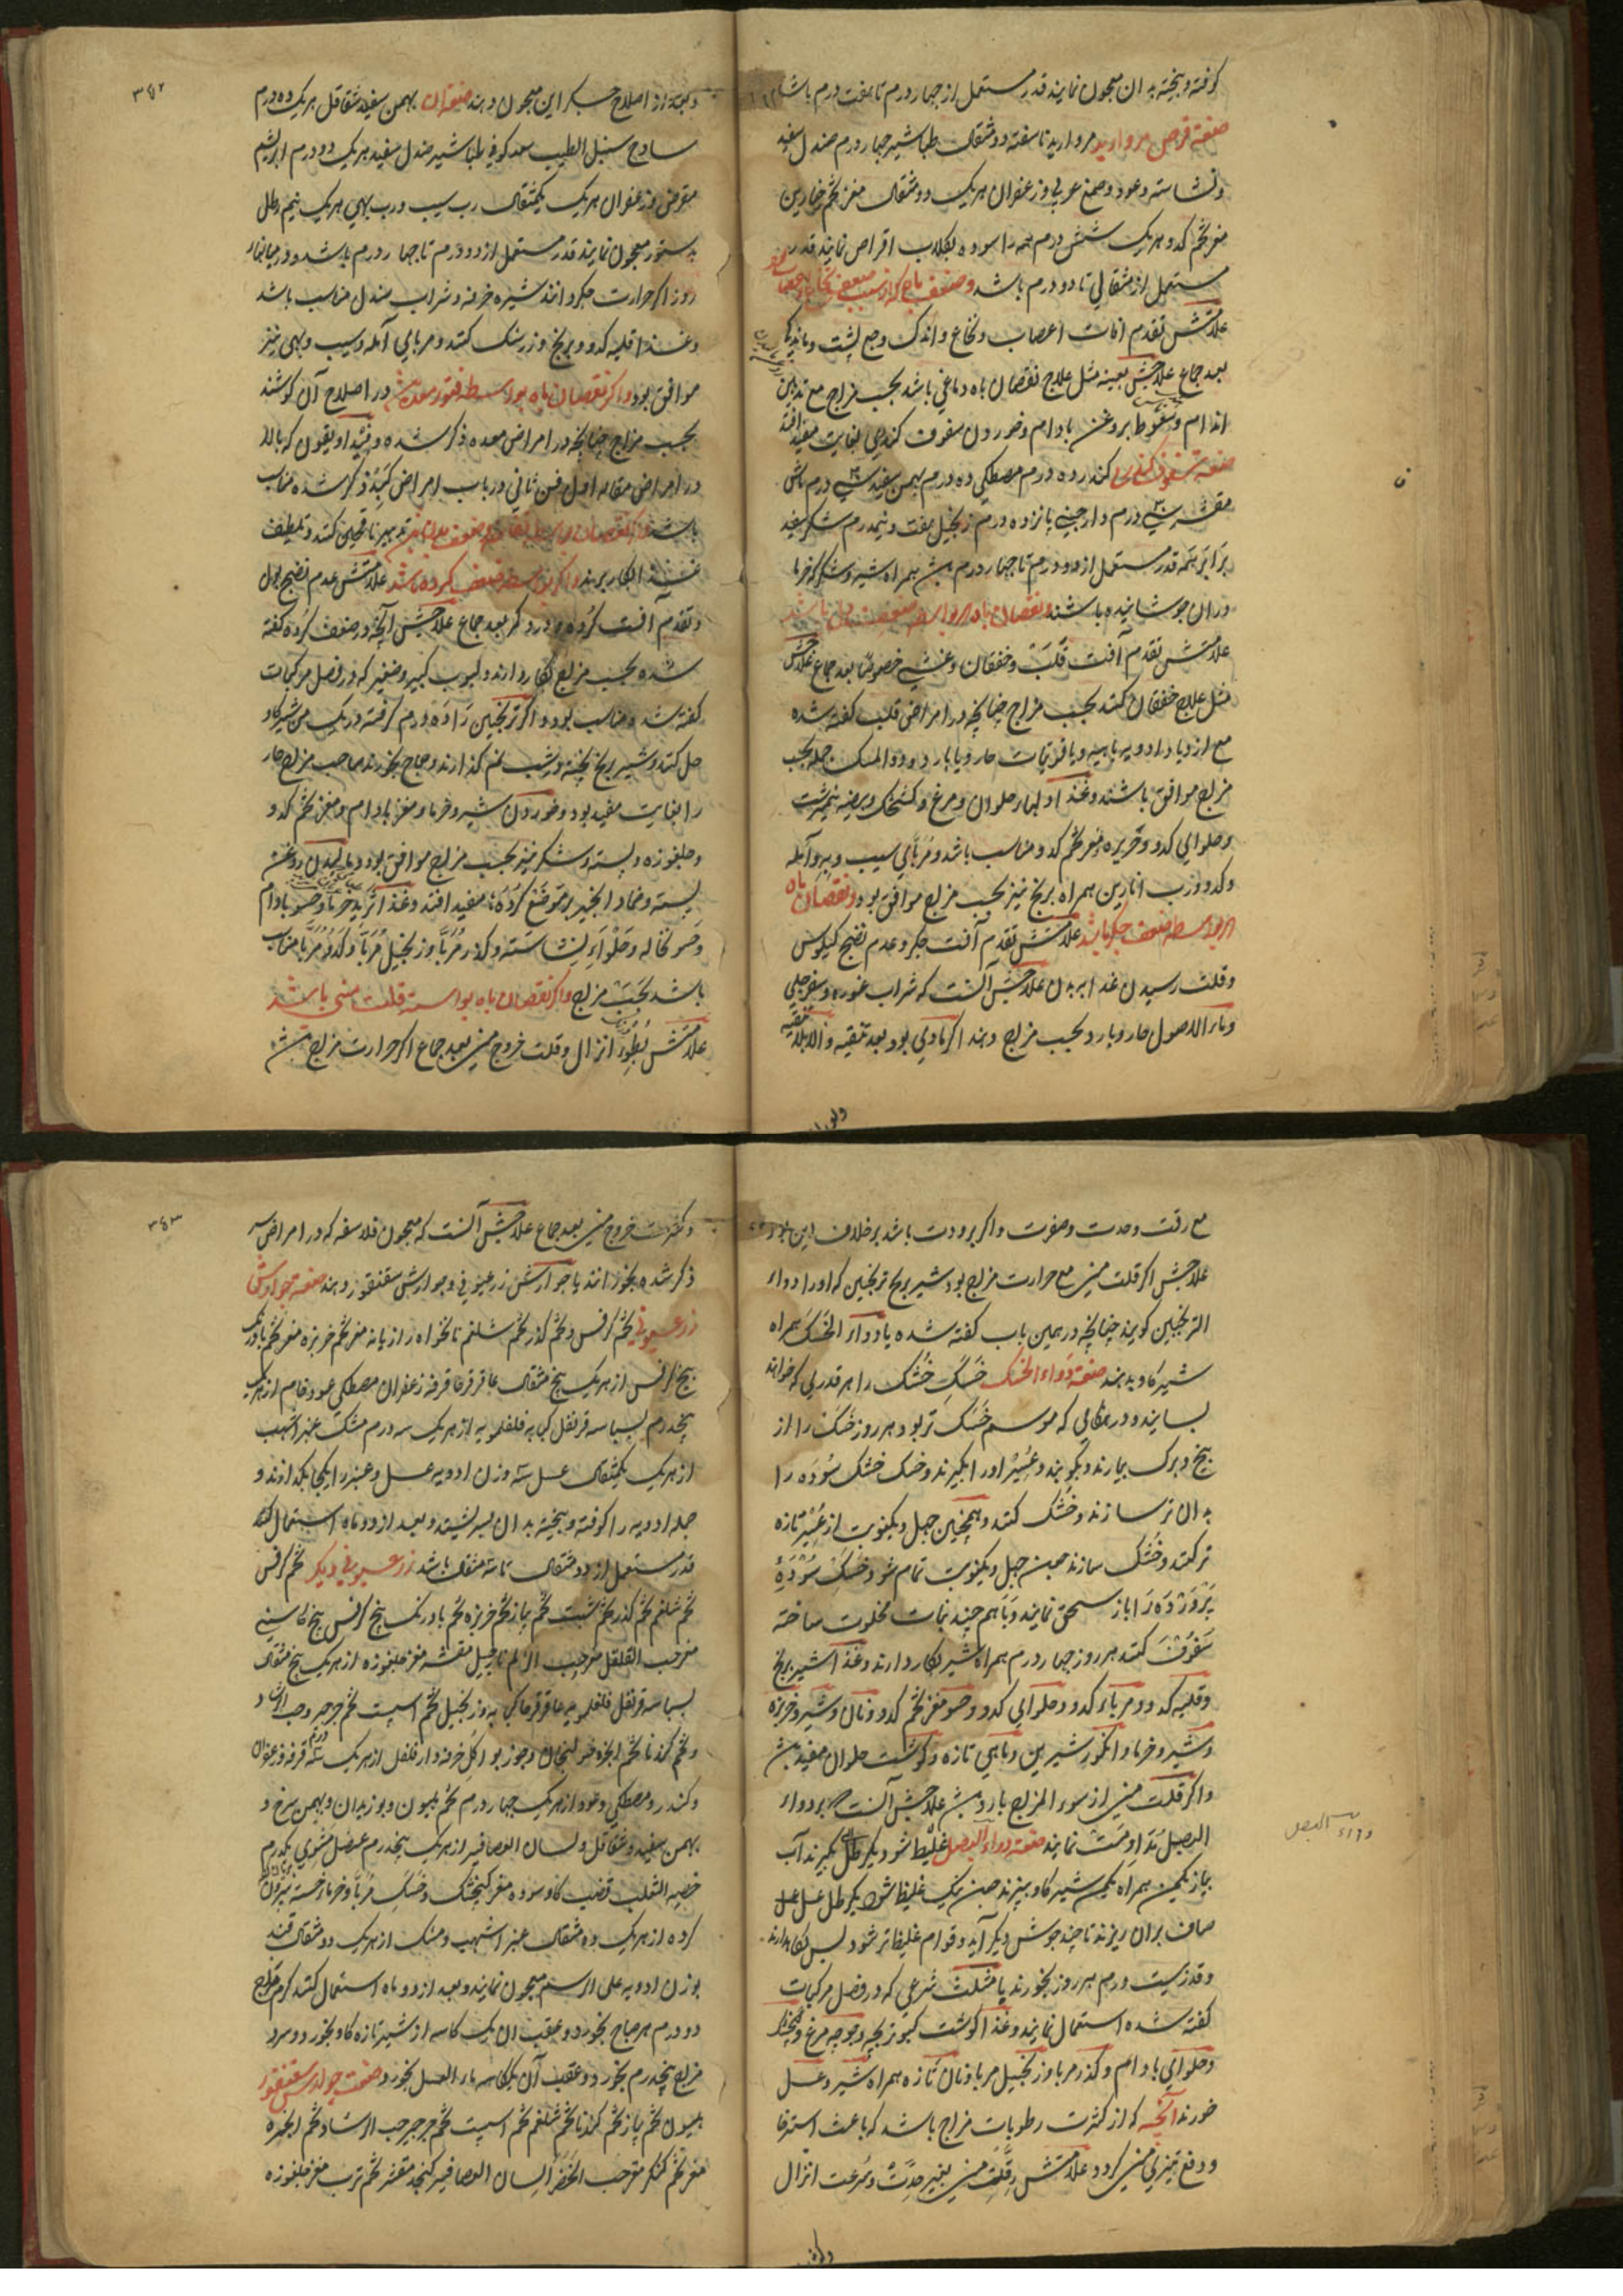 کوفته و بیخته به ان معجون نمایند قدر مستعمل از چهار درم تا هفت درم باشد
صنعة قرص مروارید مروارید ناسفته دو مثقال طباشیر چهار درم صندل سفید
و نشاسته و عود و صمغ عربی و زعفران هر یک دو مثقال مغز تخم خیارین
مغز تخم کدو هر یک شش درم همه را سوده بکلاب اقراص نمایند قدر
مستعمل از مثقالی تا دو درم باشد و ضعف باه که از سبب ضعف نخاع و
علامتش تقدم افات اعصاب و نخاع و اندک وجع پشت و ماندکی
بعد جماع علاجش بعینه مثل علاج نقصان باه دماغی باشد بحسب مزاج مع تدهین
اندام و سقوط بروغن بادام و خوردن سفوف کندری بغایت مفید افتد
صنعة سفوف کندری کندر ده درم مصطکی ده درم بهمن سفید سی درم ماش
مقشر سی درم دارچینی پانزده درم زنجبیل هفت و نیم درم شکر سفید
برابر همه قدر مستعمل از دو درم تا چهار درم همراه شیر و شکر که خرما
دران جوشانیده باشند و نقصان باه بواسطه ضعف دل باشد
علامتش تقدم آفت قلب و خفقان و غشی خصوصًا بعد جماع علاجش
مثل علاج خفقان کنند بحسب مزاج چنانچه در امراض قلب کفته شده
مع ازدیاد ادویه باهیه و یاقوتیات حار و یا بارد و دواء المسک جمله بحسب
مزاج موافق باشند و غذا و لحما حلوان و مرغ و کنجشک و بیضه نیمبرشت
و حلوای کدو و حریره مغز تخم کدو مناسب باشد و مربای سیب و به و آمله
و کدو و رب انارین همراه برنج نیز بحسب مزاج موافق بود و نقصان باه
بواسطه ضعف جکر باشد علامتش تقدم آفت جکر و عدم نضج کیلوس
و قلت رسیدن غذا ببدن علاجش آنست که شراب غوره و سفرجلی
و ماء الاصول حار و بارد بحسب مزاج دهند اکر مادی بود بعد تنقیه و الا بلا تنقیه
و بعد از اصلاح جکر این معجون دهند صنعة ان بهمن سفید شقاقل هر یک ده درم
ساذج سنبل الطیب سعد کوفی طباشیر صندل سفید هر یک دو درم ابریشم
مقرض و زعفران هر یک یکمثقال رب سیب و رب بهی هر یک نیم رطل
بدستور معجون نمایند قدر مستعمل از دو درم تا چهار درم باشد و در میانه
روز اکر حرارت جکر دانند شیره خرفه و شراب صندل مناسب باشد
و غذا قلیه کدو و برنج و زرشک کنند و مربای آمله و سیب و بهی نیز
موافق بود و اکر نقصان باه بواسطه فتور معده باشد در اصلاح آن کوشند
بحسب مزاج چنانچه در امراض معده ذکر شده و فیتداویقون که بالا
در امراض مقاله اول فن ثانی در باب امراض کبد ذکر شده مناسب
باشد تدبیر ناقهین کنند و تلطیف
غذا بکار برند و اکر بواسطه ضعف کرده باشد علامتش عدم نضج بول
و تقدم آفت کرده و درد کمر بعد جماع علاجش آنچه در ضعف کرده کفته
شده بحسب مزاج بکار دارند و لبوب کبیر و صغیر که در فصل مرکبات
کفته شد مناسب بود و اکر ترنجبین را ده درم کرفته در یک من شیر کاو
حل کنند و شیر برنج پخته و شب نم کذارند و صباح بخورند صاحب مزاج حار
را بغایت مفید بود و خوردن شیر و خرما و مغز بادام و مغز تخم کدو
و چلغوزه و پسته و شکر نیز بحسب مزاج موافق بود و مالیدن روغن
پسته و ضماد انجیر بر موضع کرده ها مفید افتد و غذا ترید خرما و حسو بادام
و حسو نخاله و حلوای نشاسته و کذر مربا و زنجبیل مربا و کدو مربا مناسب
باشد بحسب مزاج و اکر نقصان باه بواسطه قلت منی باشد
علامتش بطوء انزال و قلت خروج منی بعد جماع اکر حرارت مزاج
۳۴۲
مع رقت و حدت و صفرت و اکر برودت باشد برخلاف این بود
علاجش اکر قلت منی مع حرارت مزاج بود شیر برنج ترنجبین که اورا دواء
الترنجبین کویند چنانچه در همین باب کفته شده یا دواء الخسک همراه
شیر کاو بدهند صنعة دواء الخسک خسک خشک را هر قدری که خواهند
بسایند و در هنکامی که موسم خسک تر بود هر روز خسک را از
بیخ و برک بیارند و بکوبند و عُسیر او را بکیرند و خسک خشک سوده را
به ان تر سازند و خشک کنند و همچنین چهل و یکنوبت از عُسیر تازه
تر کنند و خشک سازند چون چهل و یکنوبت تمام شود خسک سوده
پرورده را باز سحق نمایند و باهم چند نبات مخلوت ساخته
سفوف کنند هر روز چهار درم همراه شیر بکار دارند و غذا شیر برنج
و قلیه کدو و مرباء کدو و حلوای کدو و حسو مغز تخم کدو و نان و شیر و خربزه
و شیر و خرما و انکور شیرین و ماهی تازه و کوشت حلوان مفید
و اکر قلت منی از سوء المزاج بارد علاجش آنست که بر دواء
البصل مداومت نمایند صنعة دواء البصل بکیرند آب
پیاز یکمن همراه یکمن شیر کاو بپزند چون نیک غلیظ شود یک رطل عسل
صاف بران ریزند تا چند جوش دیکر آید و قوام غلیظ تر شود پس نکاهدارند
و قدر بیست درم هر روز بخورند یا مثلث شرعی که در فصل مرکبات
کفته شده استعمال نمایند و غذا کوشت کبوتر بچه و جوجه مرغ و کنجشک
و حلوای بادام و کذر مربا و زنجبیل مربا و نان تازه همراه شیر و عسل
خورند آنچه که از کثرت رطوبات مزاج باشد که باعث استرخا
و دفع تیزی منی کردد علامتش رقت منی بغیر حدت و سرعت انزال
دواء البصل
و کثرت خروج منی بعد جماع علاجش آنست که معجون فلاسفه که در امراض
ذکر شده بخورانند یا جوارش زرعونی و جوارش سقنقور دهند صنعة جوارش
زرعونی تخم کرفس و تخم کذر تخم شلغم نانخواه رازیانه مغز تخم خربزه مغز تخم بادرنک
بیخ کرفس از هر یک پنج مثقال عاقرقرحا قرفه زعفران مصطکی عود خام از هر یک
پنجدرم بسباسه قرنفل کبابه فلفلمویه از هر یک سه درم مشک عنبر اشهب
از هر یک یکمثقال عسل سه وزن ادویه عسل و عنبر را یکجا بکدازند و
جمله ادویه را کوفته و بیخته بدان بسرشند و بعد از دو ماه استعمال کنند
قدر مستعمل از دو مثقال تا سه مثقال باشد زرعونی دیکر تخم کرفس
تخم شلغم تخم کذر تخم شبت تخم پیاز تخم خربزه تخم بادرنک بیخ کرفس بیخ کاسنی
مغز حب القلقل مغز حب الزلم نارجیل مقشر مغز چلغوزه از هر یک پنج مثقال
بسباسه قرنفل فلفلمویه عاقرقرحا کبابه زنجبیل تخم اسپست تخم جرجیر و حب الرشاد
و تخم کندنا تخم انجره خولنجان و جوز بوا دارفلفل از هر یک سه درم قرفه زعفران
و کندر و مصطکی و عود از هر یک چهار درم تخم هلیون و بوزیدان و بهمن سرخ و
بهمن سفید و شقاقل و لسان العصافیر از هر یک پنجدرم عنصل مشوی یکدرم
خصیة الثعلب قضیب کاو سوده مغز کنجشک و خسک مربا و خرما خسته بیرون
کرده از هر یک ده مثقال عنبر اشهب و مشک از هر یک دو مثقال قند
بوزن ادویه علی الرسم معجون نمایند و بعد از دو ماه استعمال کنند کرم مزاج
دو درم هر صباح بخورد و عقب ان یک کاسه از شیر تازه کاو بخورد و سرد
مزاج پنجدرم بخورد و عقب آن یکاسه ماء العسل بخورد صنعت جوارش سقنقور
هلیون تخم پیاز تخم کندنا تخم شلغم تخم اسپست تخم جرجیر حب الرشاد تخم انجره
مغز تخم کنکر مغز حب الخضرا لسان العصافیر کنجد مقشر تخم ترب مغز چلغوزه
۳۴۳